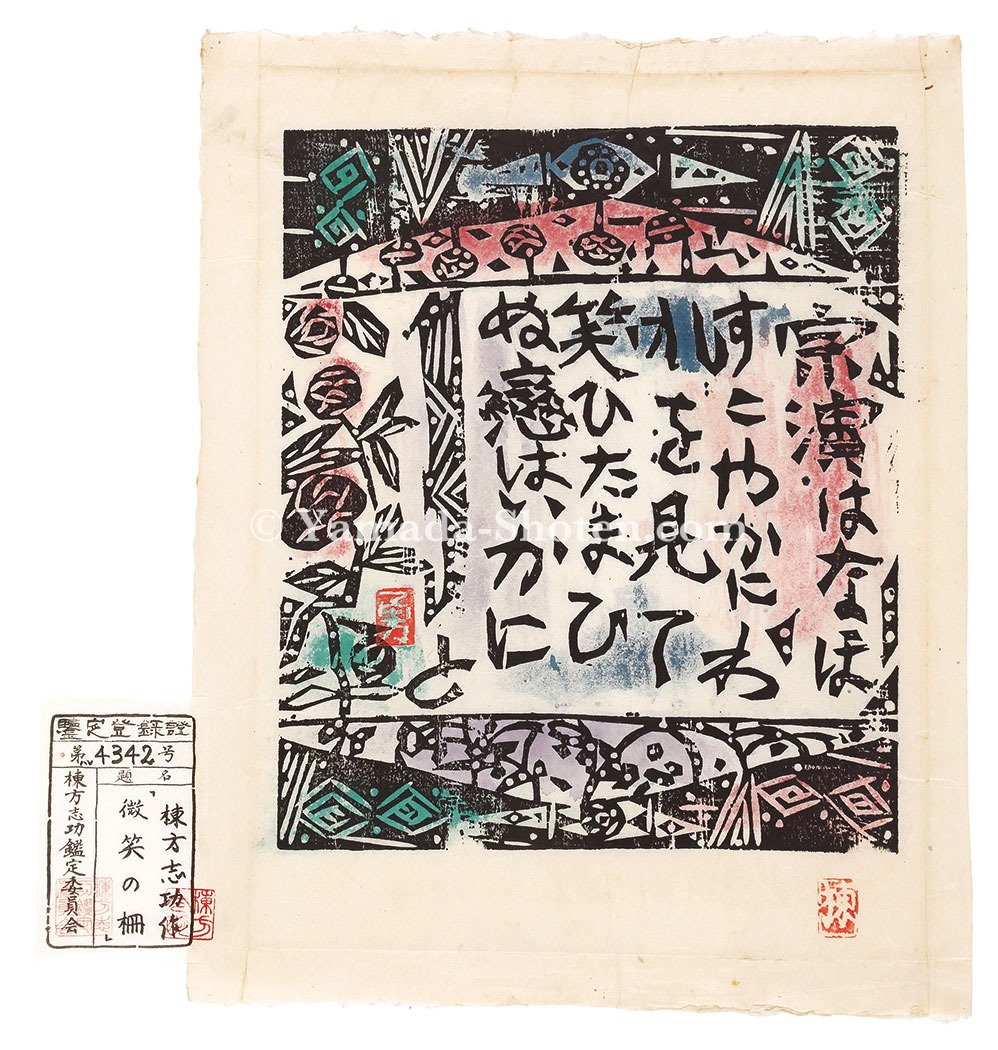 宗演はなほ
すこやかにわ
れを見て
笑ひたまひ
ぬ戀はいかに
と
© Yamada-Shoten.com
鑒定登録證
第4342号
題名
棟方志功作
「微笑の柵」
棟方志功鑑定委員会
棟方